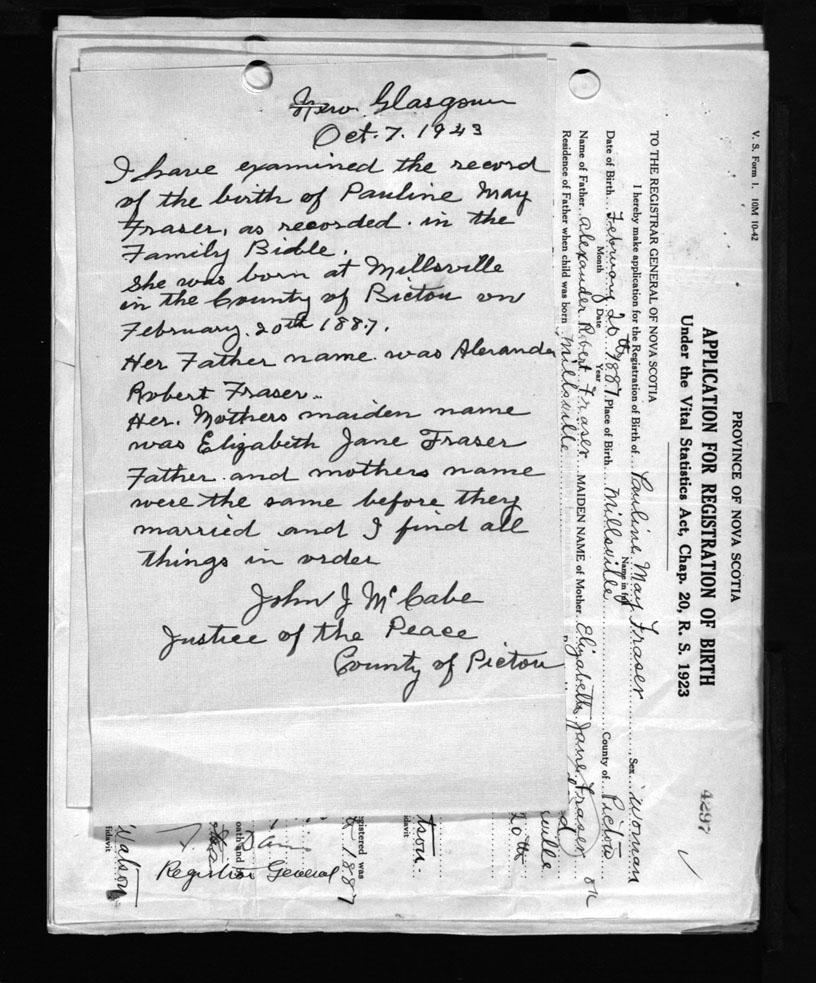 New Glasgow
Oct. 7. 1943
I have examined the record
of the birth of Pauline May
Fraser, as recorded in the
Family Bible.
She was born at Millsville
in the County of Pictou on
February. 20th 1887.
Her Father name was Alexander
Robert Fraser..
Her. Mothers maiden name
was Elizabeth Jane Fraser
Father and mothers name
were the same before they
married and I find all
things in order
John J McCabe
Justice of the Peace
County of Pictou
V. S. Form 1. 10M 10-42
PROVINCE OF NOVA SCOTIA
APPLICATION FOR REGISTRATION OF BIRTH
Under the Vital Statistics Act, Chap. 20, R. S. 1923
4297
TO THE REGISTRAR GENERAL OF NOVA SCOTIA
I hereby make application for the Registration of Birth of Pauline May Fraser Sex woman
Name in full
Date of Birth February 20th 1887 Place of Birth Millsville County of Pictou
Month Date Year
Name of Father Alexander Robert Fraser MAIDEN NAME of Mother Elizabeth Jane Fraser
Residence of Father when child was born Millsville
ville
20th
tson.
davit
gistered was
1887
Registrar General
oath and
Watson
fidavit